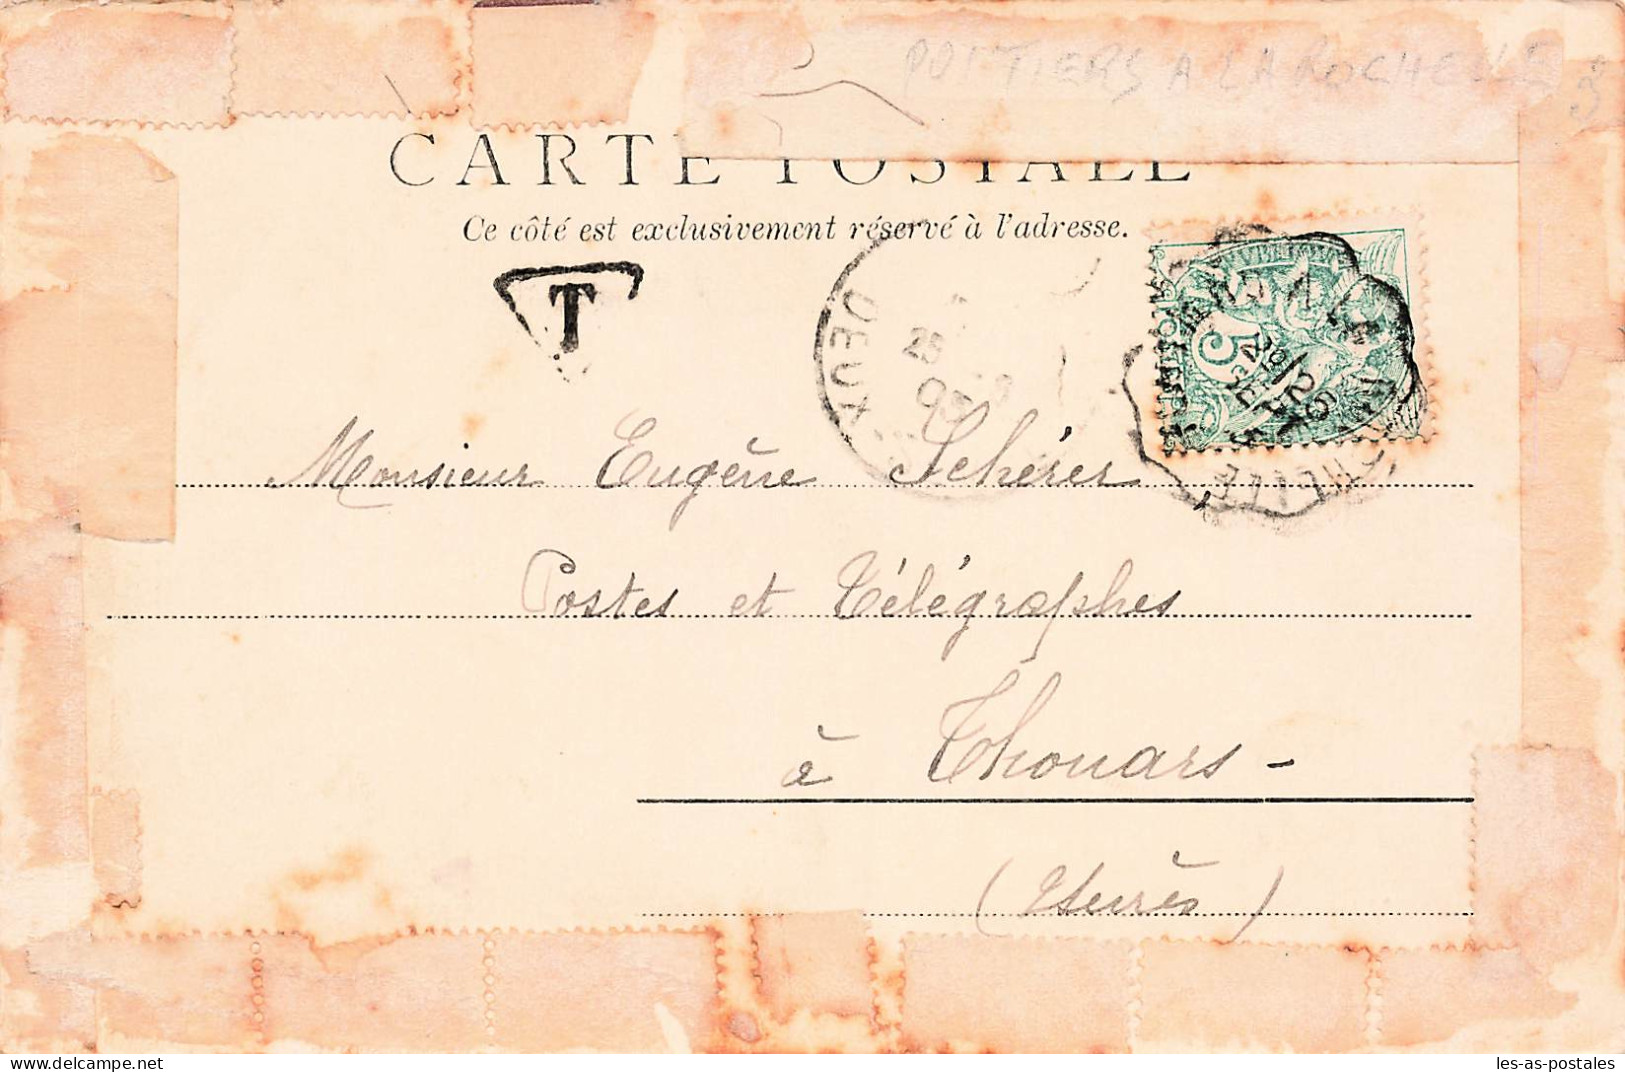 POITIERS A LA ROCHELLE
CARTE POSTALE
Ce côté est exclusivement réservé à l'adresse.
T
DEUX
25
03
5
26
SEPT
Monsieur Eugène Schérer
Postes et Télégraphes
à Thouars -
(2 Sèvres)
delcampe.net
les-as-postales